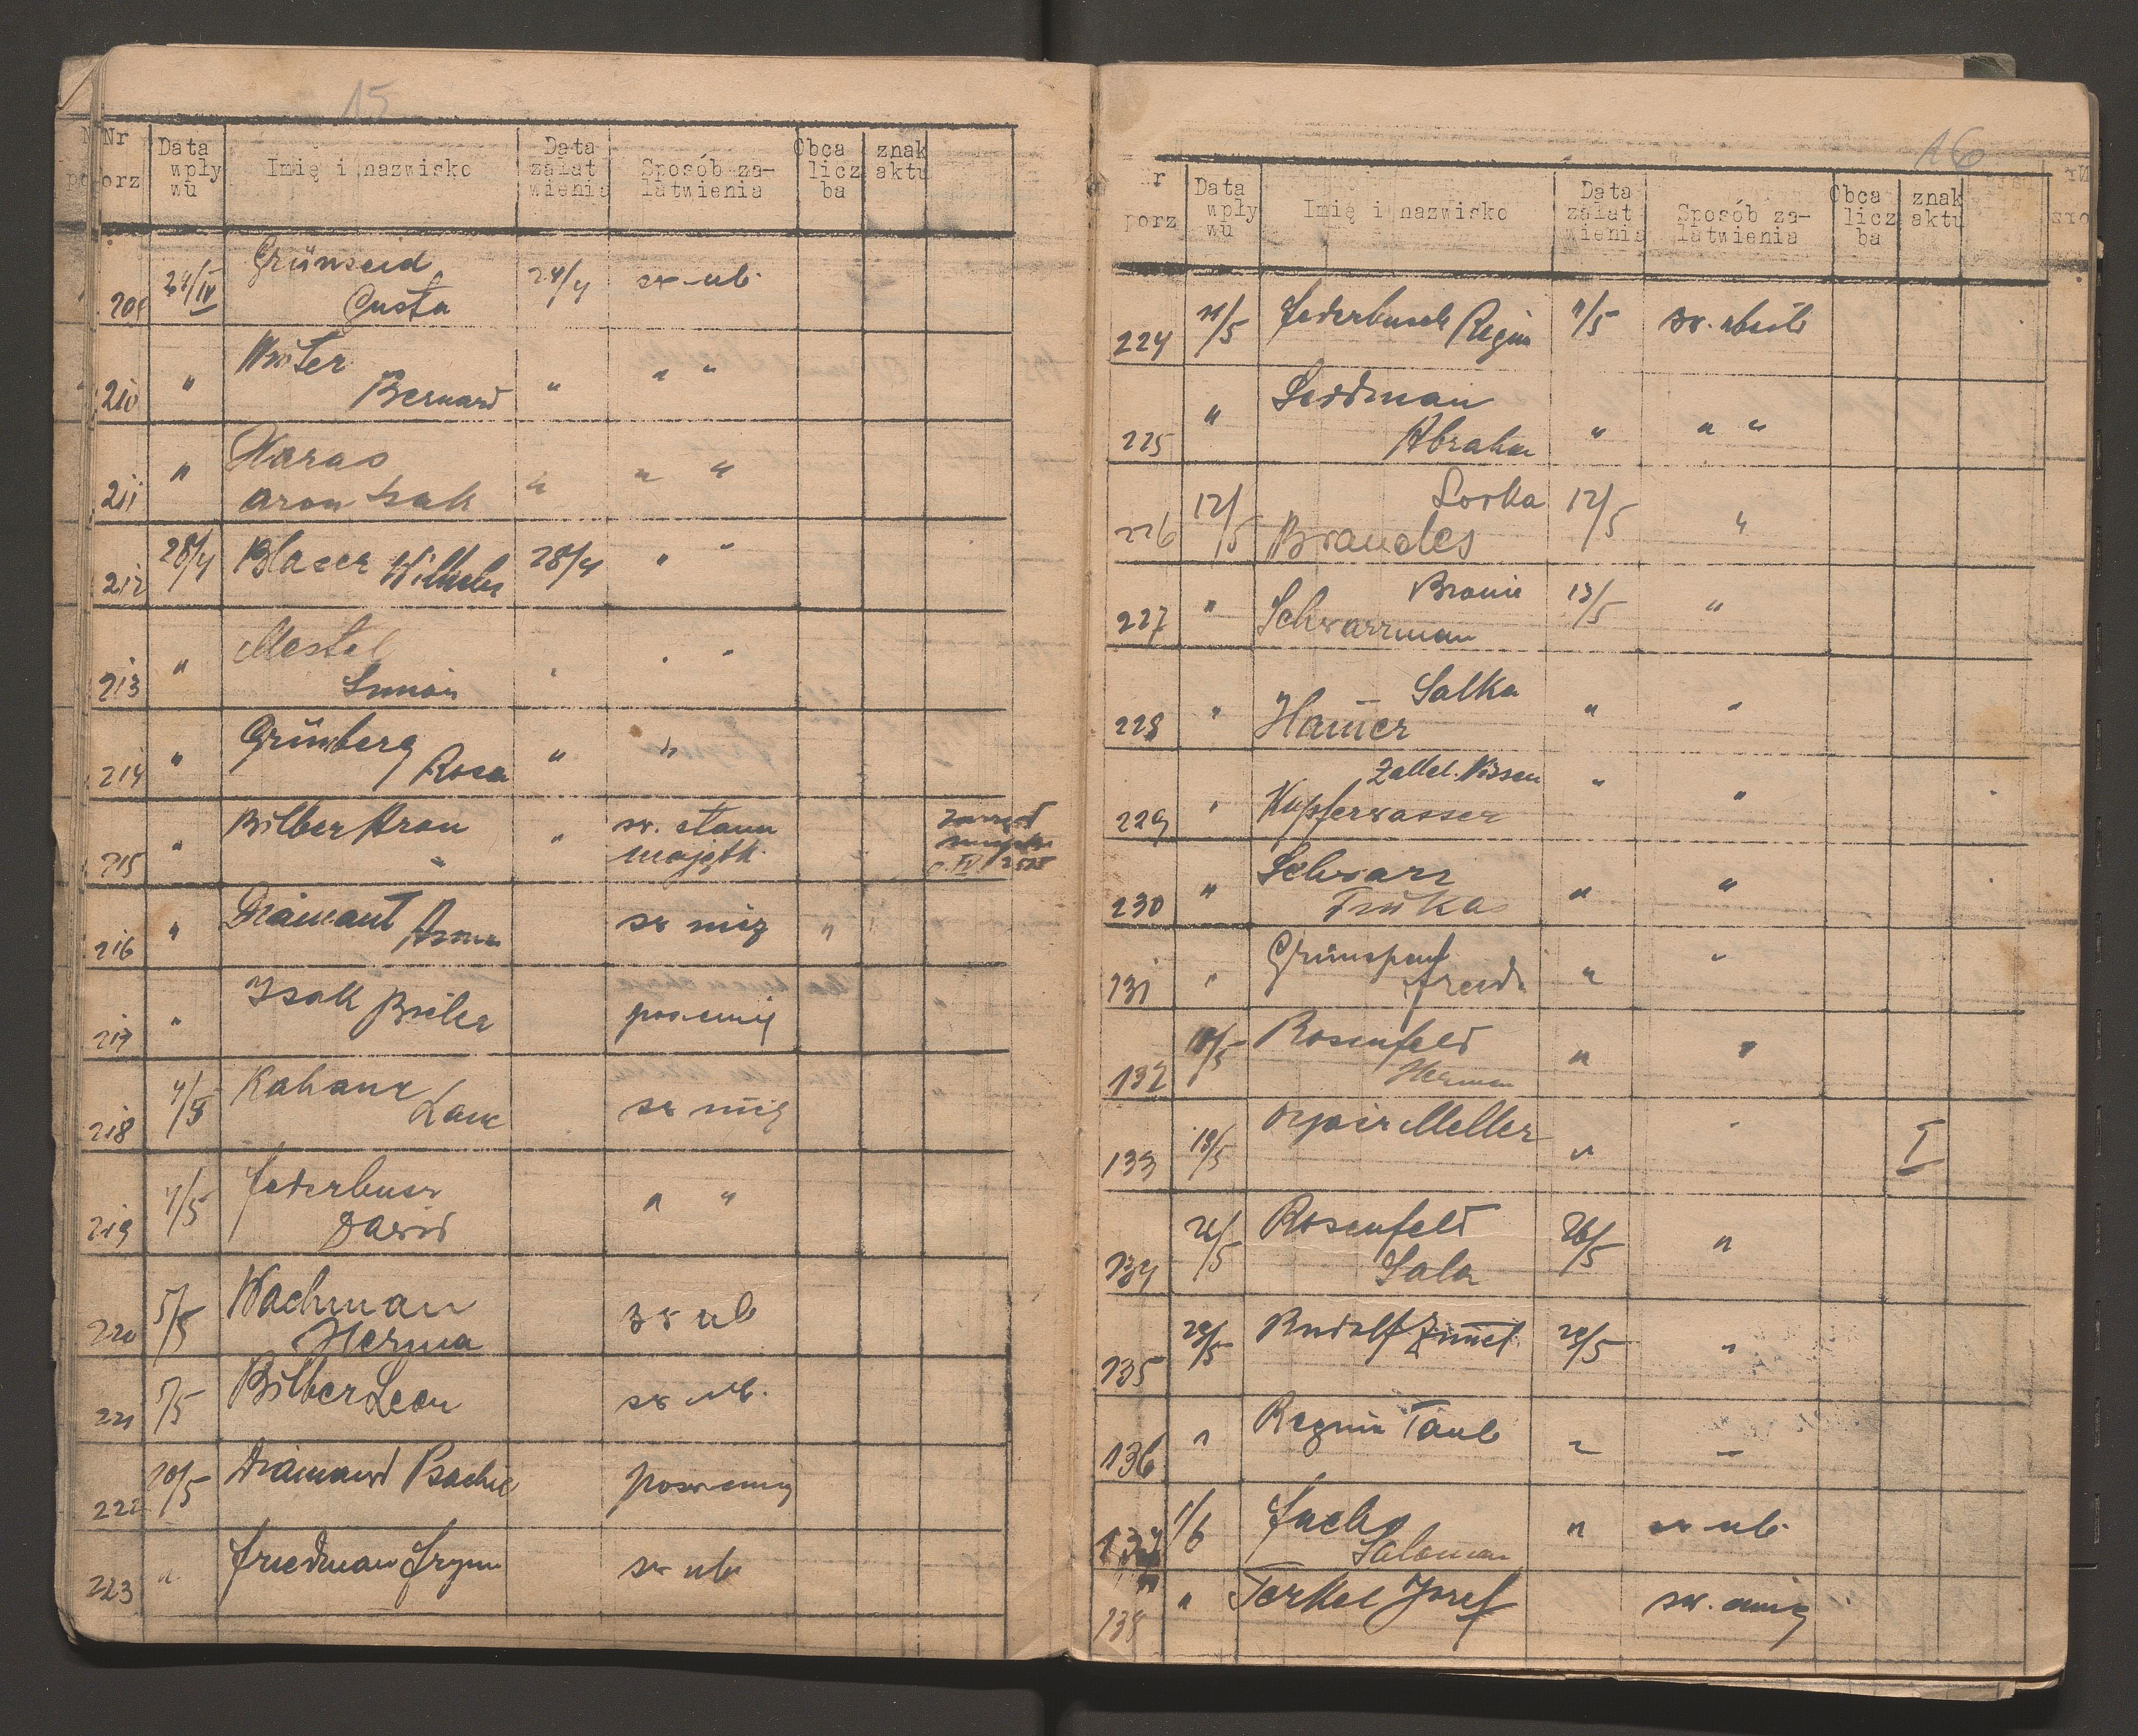 15
Nr porz | Data wpły wu | Imię i nazwisko | Data załat wienia | Sposób za- łatwienia | Obca licz ba | znak aktu
209 | 24/IV | Grünseid Gusta | 24/4 | św ub.
210 | " | Winter Bernard | " | " "
211 | " | Haras Aron Izak | " | " "
212 | 28/4 | Blaser Wilhelm | 28/4 | " "
213 | " | Mestel Simon | " | " "
214 | " | Grünberg Rosa | " | "
215 | " | Bilber Aron | " | św. stanu majątk.
216 | " | Diamant | św mig | "
217 | " | Isak | poś emig
218 | 4/5 | Kahane | św mig
219 | 4/5 | Federbusz Dawid | " "
220 | 5/5 | Wachman Herma | św ub
221 | 5/5 | Bilber Leon | św ub.
222 | 10/5 | Diamand | pośw emig
223 | " | Friedman | św ub
16
Nr porz | Data wpły wu | Imię i nazwisko | Data załat wienia | Sposób za- łatwienia | Obca licz ba | znak aktu
224 | 11/5 | Federbusch Regina | 11/5 | św.
225 | " | Abraham | " | " "
226 | 12/5 | Lorka Brandes | 12/5 | "
227 | " | Bronia Schwarzman | 13/5 | "
228 | " | Salka Ham̅er | " | "
229 | " | Kupferwasser | " | "
230 | " | Schwarz | " | "
131 | " | Grünspan Freida | " | "
132 | 18/5 | Rosenfeld Herman | " | "
133 | 18/5 | Meller | " | " | I
134 | 26/5 | Rosenfeld Sala | 26/5 | "
135 | 28/5 | Rudolf Zim̅et | 28/5 | "
136 | " | Regina Taub | " | "
137 | 1/6 | Fuchs Salomon | " | św ub.
138 | " | Terkel Josef | św. emig